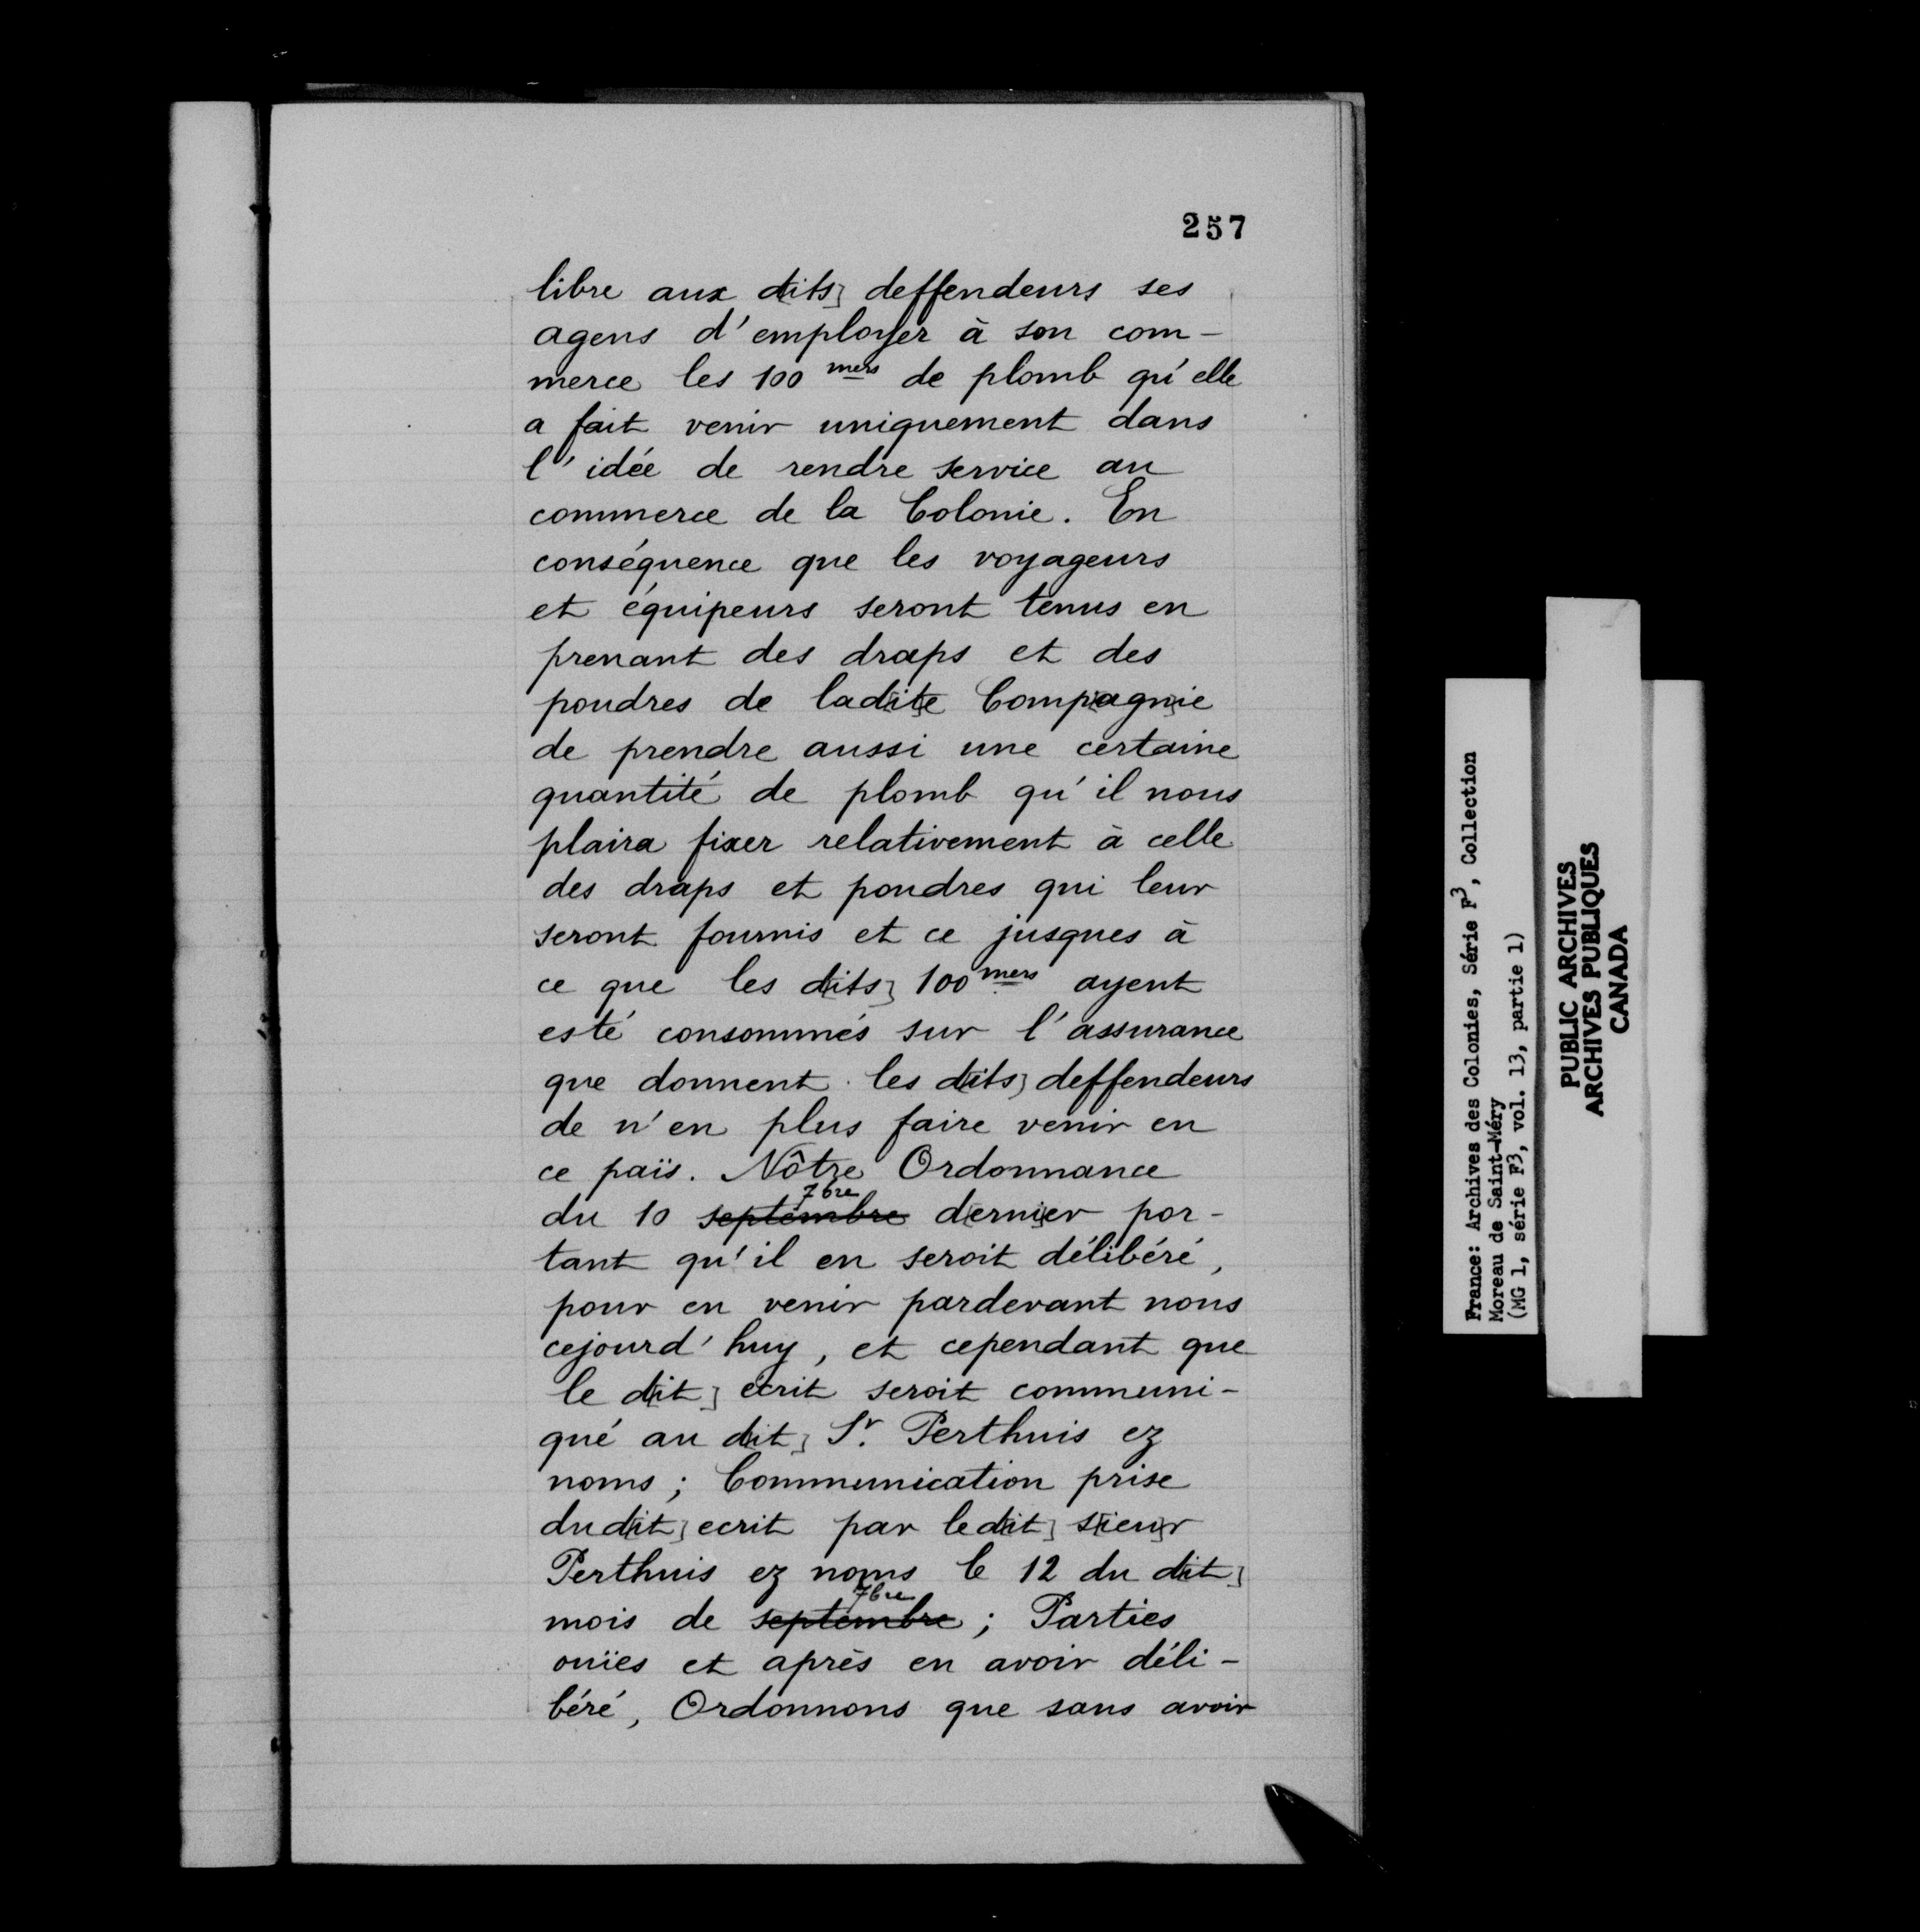 257
libre aux d[its] deffendeurs ses
agens d'employer à son com-
merce les 100 mers de plomb qu'elle
a fait venir uniquement dans
l'idée de rendre service au
commerce de la Colonie. En
conséquence que les voyageurs
et équipeurs seront tenus en
prenant des draps et des
poudres de lad[it]e Comp[agn]ie
de prendre aussi une certaine
quantité de plomb qu'il nous
plaira fixer relativement à celle
des draps et poudres qui leur
seront fournis et ce jusques à
ce que les d[its] 100 mers ayent
esté consommés sur l'assurance
que donnent les d[its] deffendeurs
de n'en plus faire venir en
ce païs. Nôtre Ordonnance
7bre
du 10 septembre d[erni]er por-
tant qu'il en seroit délibéré,
pour en venir pardevant nous
cejourd'huy, et cependant que
le d[it] écrit seroit communi-
qué au d[it] Sr. Perthuis ez
noms; Communication prise
dud[it] ecrit par led[it] s[ieu]r
Perthuis ez noms le 12 du d[it]
7bre
mois de septembre; Parties
ouïes et après en avoir déli-
béré, Ordonnons que sans avoir
France: Archives des Colonies, Série F3, Collection
Moreau de Saint-Méry
(MG 1, série F3, vol. 13, partie 1)
PUBLIC ARCHIVES
ARCHIVES PUBLIQUES
CANADA